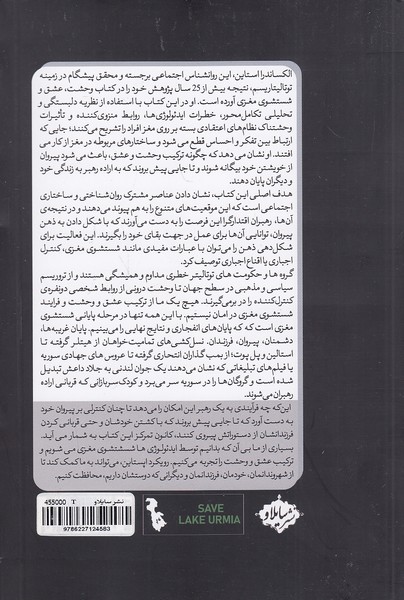 الکساندرا استاین، این روانشناس اجتماعی برجسته و محقق پیشگام در زمینه
توتالیتاریسم، نتیجه بیش از 25 سال پژوهش خود را در کتاب وحشت، عشق و
شستشوی مغزی آورده است. او در این کتاب با استفاده از نظریه دلبستگی و
تحلیلی تکامل‌محور، خطرات ایدئولوژی‌ها، روابط منزوی‌کننده و تأثیرات
وحشتناک نظام‌های اعتقادی بسته بر روی مغز افراد را تشریح می‌کند؛ جایی که
ارتباط بین تفکر و احساس قطع می‌شود و ساختارهای مربوطه در مغز از کار می
افتند. او نشان می‌دهد که چگونه ترکیب وحشت و عشق، باعث می‌شود پیروان
از خویشتن خود بیگانه شوند و تا جایی پیش بروند که به اراده رهبر به زندگی خود
و دیگران پایان دهند.
هدف اصلی این کتاب، نشان دادن عناصر مشترک روان‌شناختی و ساختاری
اجتماعی است که این موقعیت‌های متنوع را به هم پیوند می‌دهند و در نتیجه‌ی
آن‌ها، رهبران اقتدارگرا این فرصت را به دست می‌آورند که با شکل دادن به ذهن
پیروان، توانایی آن‌ها برای عمل در جهت بقای خود را بگیرند. این فعالیت برای
شکل‌دهی ذهن را می‌توان با عبارات مفیدی مانند شستشوی مغزی، کنترل
اجباری یا اقناع اجباری توصیف کرد.
گروه ها و حکومت های توتالیتر خطری مداوم و همیشگی هستند و از تروریسم
سیاسی و مذهبی در سطح جهان تا وحشت درونی از روابط شخصی دونفره‌ی
کنترل‌کننده را در برمی‌گیرند. هیچ یک ما از ترکیب عشق و وحشت و فرایند
شستشوی مغزی در امان نیستیم. با این همه تنها در مرحله پایانی شستشوی
مغزی است که که پایان‌های انفجاری و نتایج نهایی را می‌بینیم. پایان غریبه‌ها،
دشمنان، پیروان، فرزندان. نسل‌کشی‌های تمامیت‌خواهان از هیتلر گرفته تا
استالین و پل پوت؛ از بمب گذاران انتحاری گرفته تا عروس های جهادی سوریه
یا فیلم‌های تبلیغاتی که نشان می‌دهند یک جوان لندنی به جلاد داعش تبدیل
شده است و گروگان‌ها را در سوریه سر می‌برد و کودک‌سربازانی که قربانی اراده
رهبران می‌شوند.
این‌که چه فرآیندی به یک رهبر این امکان را می‌دهد تا چنان کنترلی بر پیروان خود
به دست آورد که تا جایی پیش بروند که با کشتن خودشان و حتی قربانی کردن
فرزندانشان از دستوراتش پیروی کنند، کانون تمرکز این کتاب به شمار می آید.
بسیاری از ما بی آن که بدانیم توسط ایدئولوژی ها شستشوی مغزی می شویم و
ترکیب عشق و وحشت را تجربه می‌کنیم. رویکرد استاین، می‌تواند به ما کمک کند تا
از شهروندانمان، خودمان، فرزندانمان و دیگرانی که دوستشان داریم، محافظت کنیم.
نشر سایلاو
SAVE
LAKE URMIA
نشر سایلاو
455000 T
9786227124583